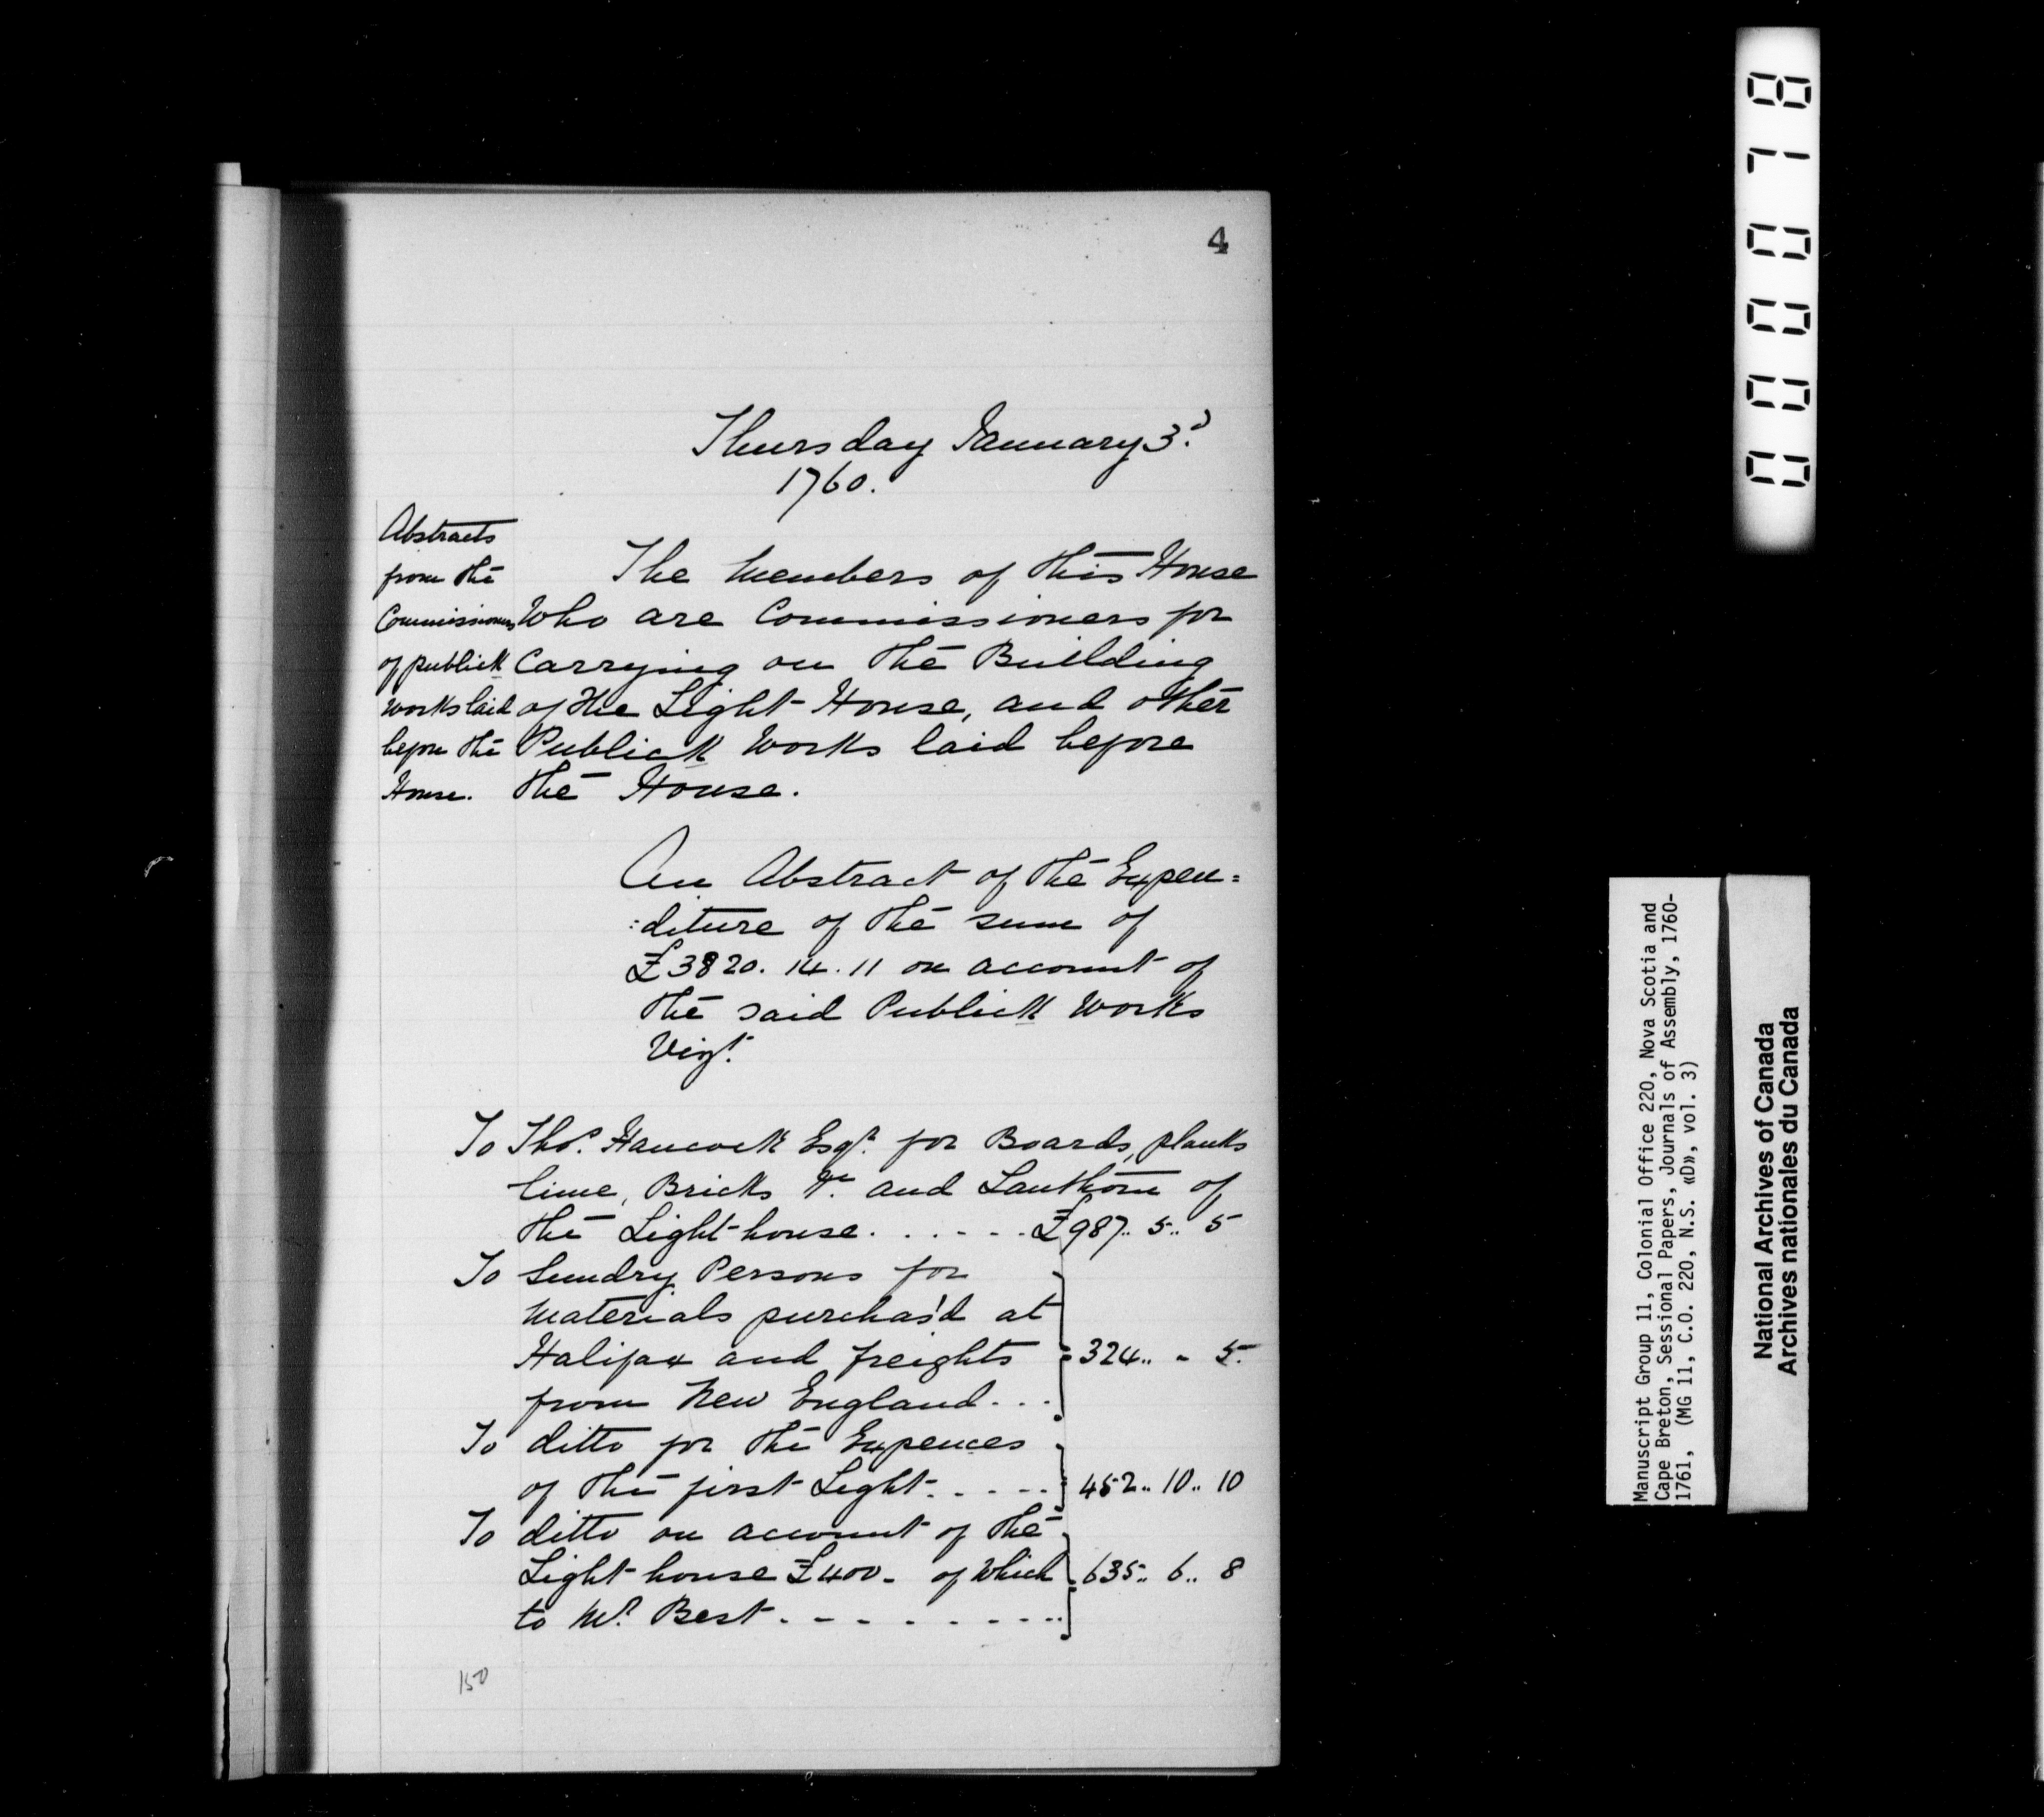 4
Thursday January 3.d
1760.
Abstracts
from the
Commissioners
of publick
works laid
before the
House.
The Members of this House
Who are Commissioners for
Carrying on the Building
of the Light-House, and other
Publick Works laid before
the House.
An Abstract of the Expen=
:diture of the sum of
£3820. 14. 11 on account of
the said Publick Works
Vizt.
To Thos. Hancock Esqr. for Boards, planks
lime, Bricks &c. and Lanthorn of
the Light-house. . . . . . £987.. 5.. 5
To Sundry Persons for
Materials purchas'd at
Halifax and freights 324.. - 5.
from New England. . .
To ditto for the Expences
of the first Light. . . . . 452.. 10.. 10
To ditto on account of the
Light-house £400 - of which 635.. 6.. 8
to Mr. Best. - - - - - - - - -
150
000078
Manuscript Group 11, Colonial Office 220, Nova Scotia and
Cape Breton, Sessional Papers, Journals of Assembly, 1760-
1761, (MG 11, C.O. 220, N.S. «D», vol. 3)
National Archives of Canada
Archives nationales du Canada